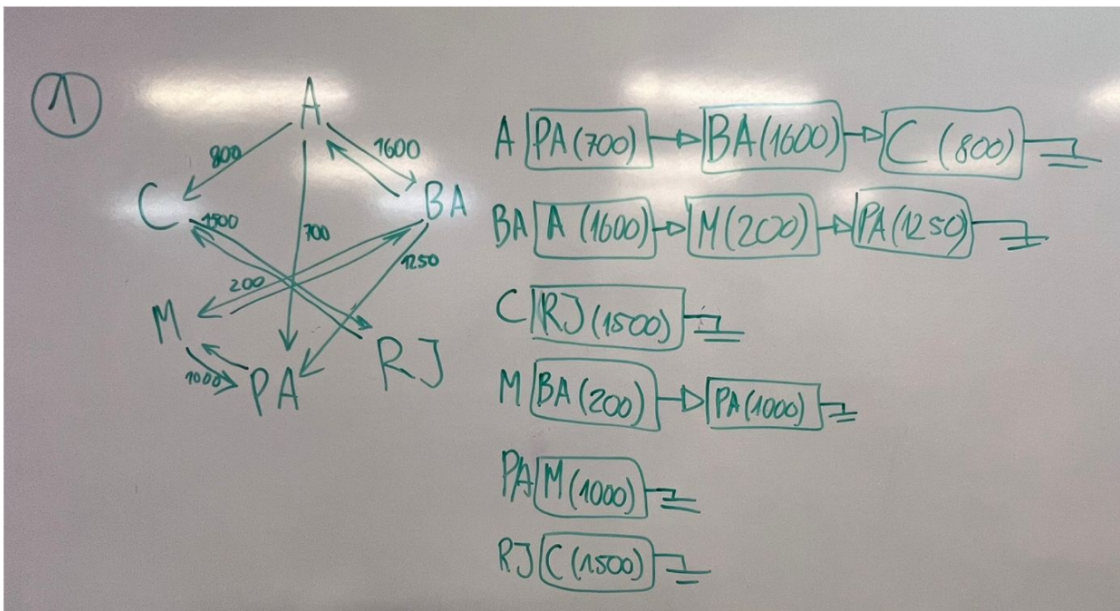 1
A
800
1600
C
BA
1500
700
1250
200
M
RJ
1000
PA
A PA(700) BA(1600) C (800)
BA A (1600) M(200) PA(1250)
C RJ(1500)
M BA(200) PA(1000)
PA M(1000)
RJ C(1500)